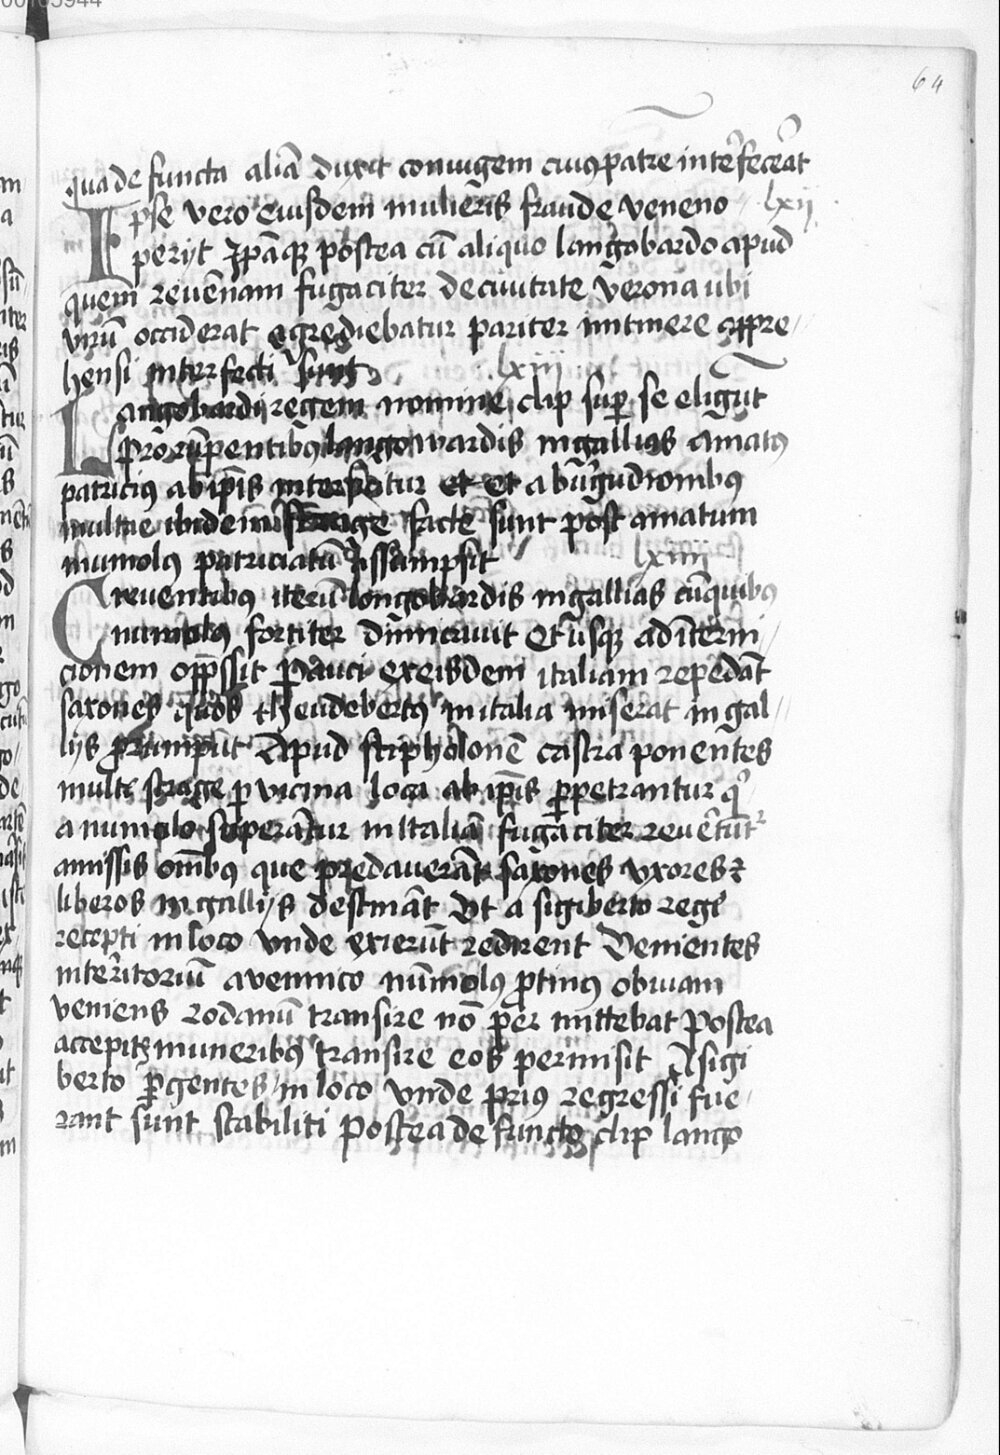 64
qua de functa aliā duxit coniugem cuiꝰ patrē interfecerāt
Ipse vero Eiusdem mulieris fraude veneno lxii
perijt Ipāqꝫ postea cū aliquo langobardo apud
quem revēnam fugaciter de civitate verona ubi
virū occiderat egrediebatur pariter in itinere appre
hensi interfecti sunt lxiii
Langobardi regem nomine clip sup̱ se eligūt
Prorūpentibꝰ langowardis in gallias amatꝰ
patriciꝰ ab ip̄is interficitur et et a būgūdionibꝰ
multae ibidem strage facte sunt post amatum
mumolꝰ patriciatū assumpsit lxiiii
Creventibus iterū longobardis in gallias cū quibus
numolꝰ fortiter dimicavit Et usqꝫ ad interni
cionem opp̄ssit Pauci ex eisdem italiam repedāt
saxones quos theudebertꝰ in italia miserat in gal
lijs prorumpūt Apud stipholonē castra ponentes
multe strage p̱ vicina loca ab ip̄is p̱petrantur q̇
a numolo superātur in Italiā fugaciter revertūtr
amissis om̄ibꝰ que predaverāt saxones vxores ⁊
liberos in gallijs destināt Vt a sigiberto rege
recepti in loco vnde exierūt redirent Venientes
in teritoriū avennico nūmolꝰ protinꝰ obviam
veniens rodanū transire nō per mittebat Postea
acceptis muneribꝰ transire eos permisit A sigi
berto p̱gentes in loco vnde priꝰ regressi fue
rant sunt stabiliti Postea de functo clip lango